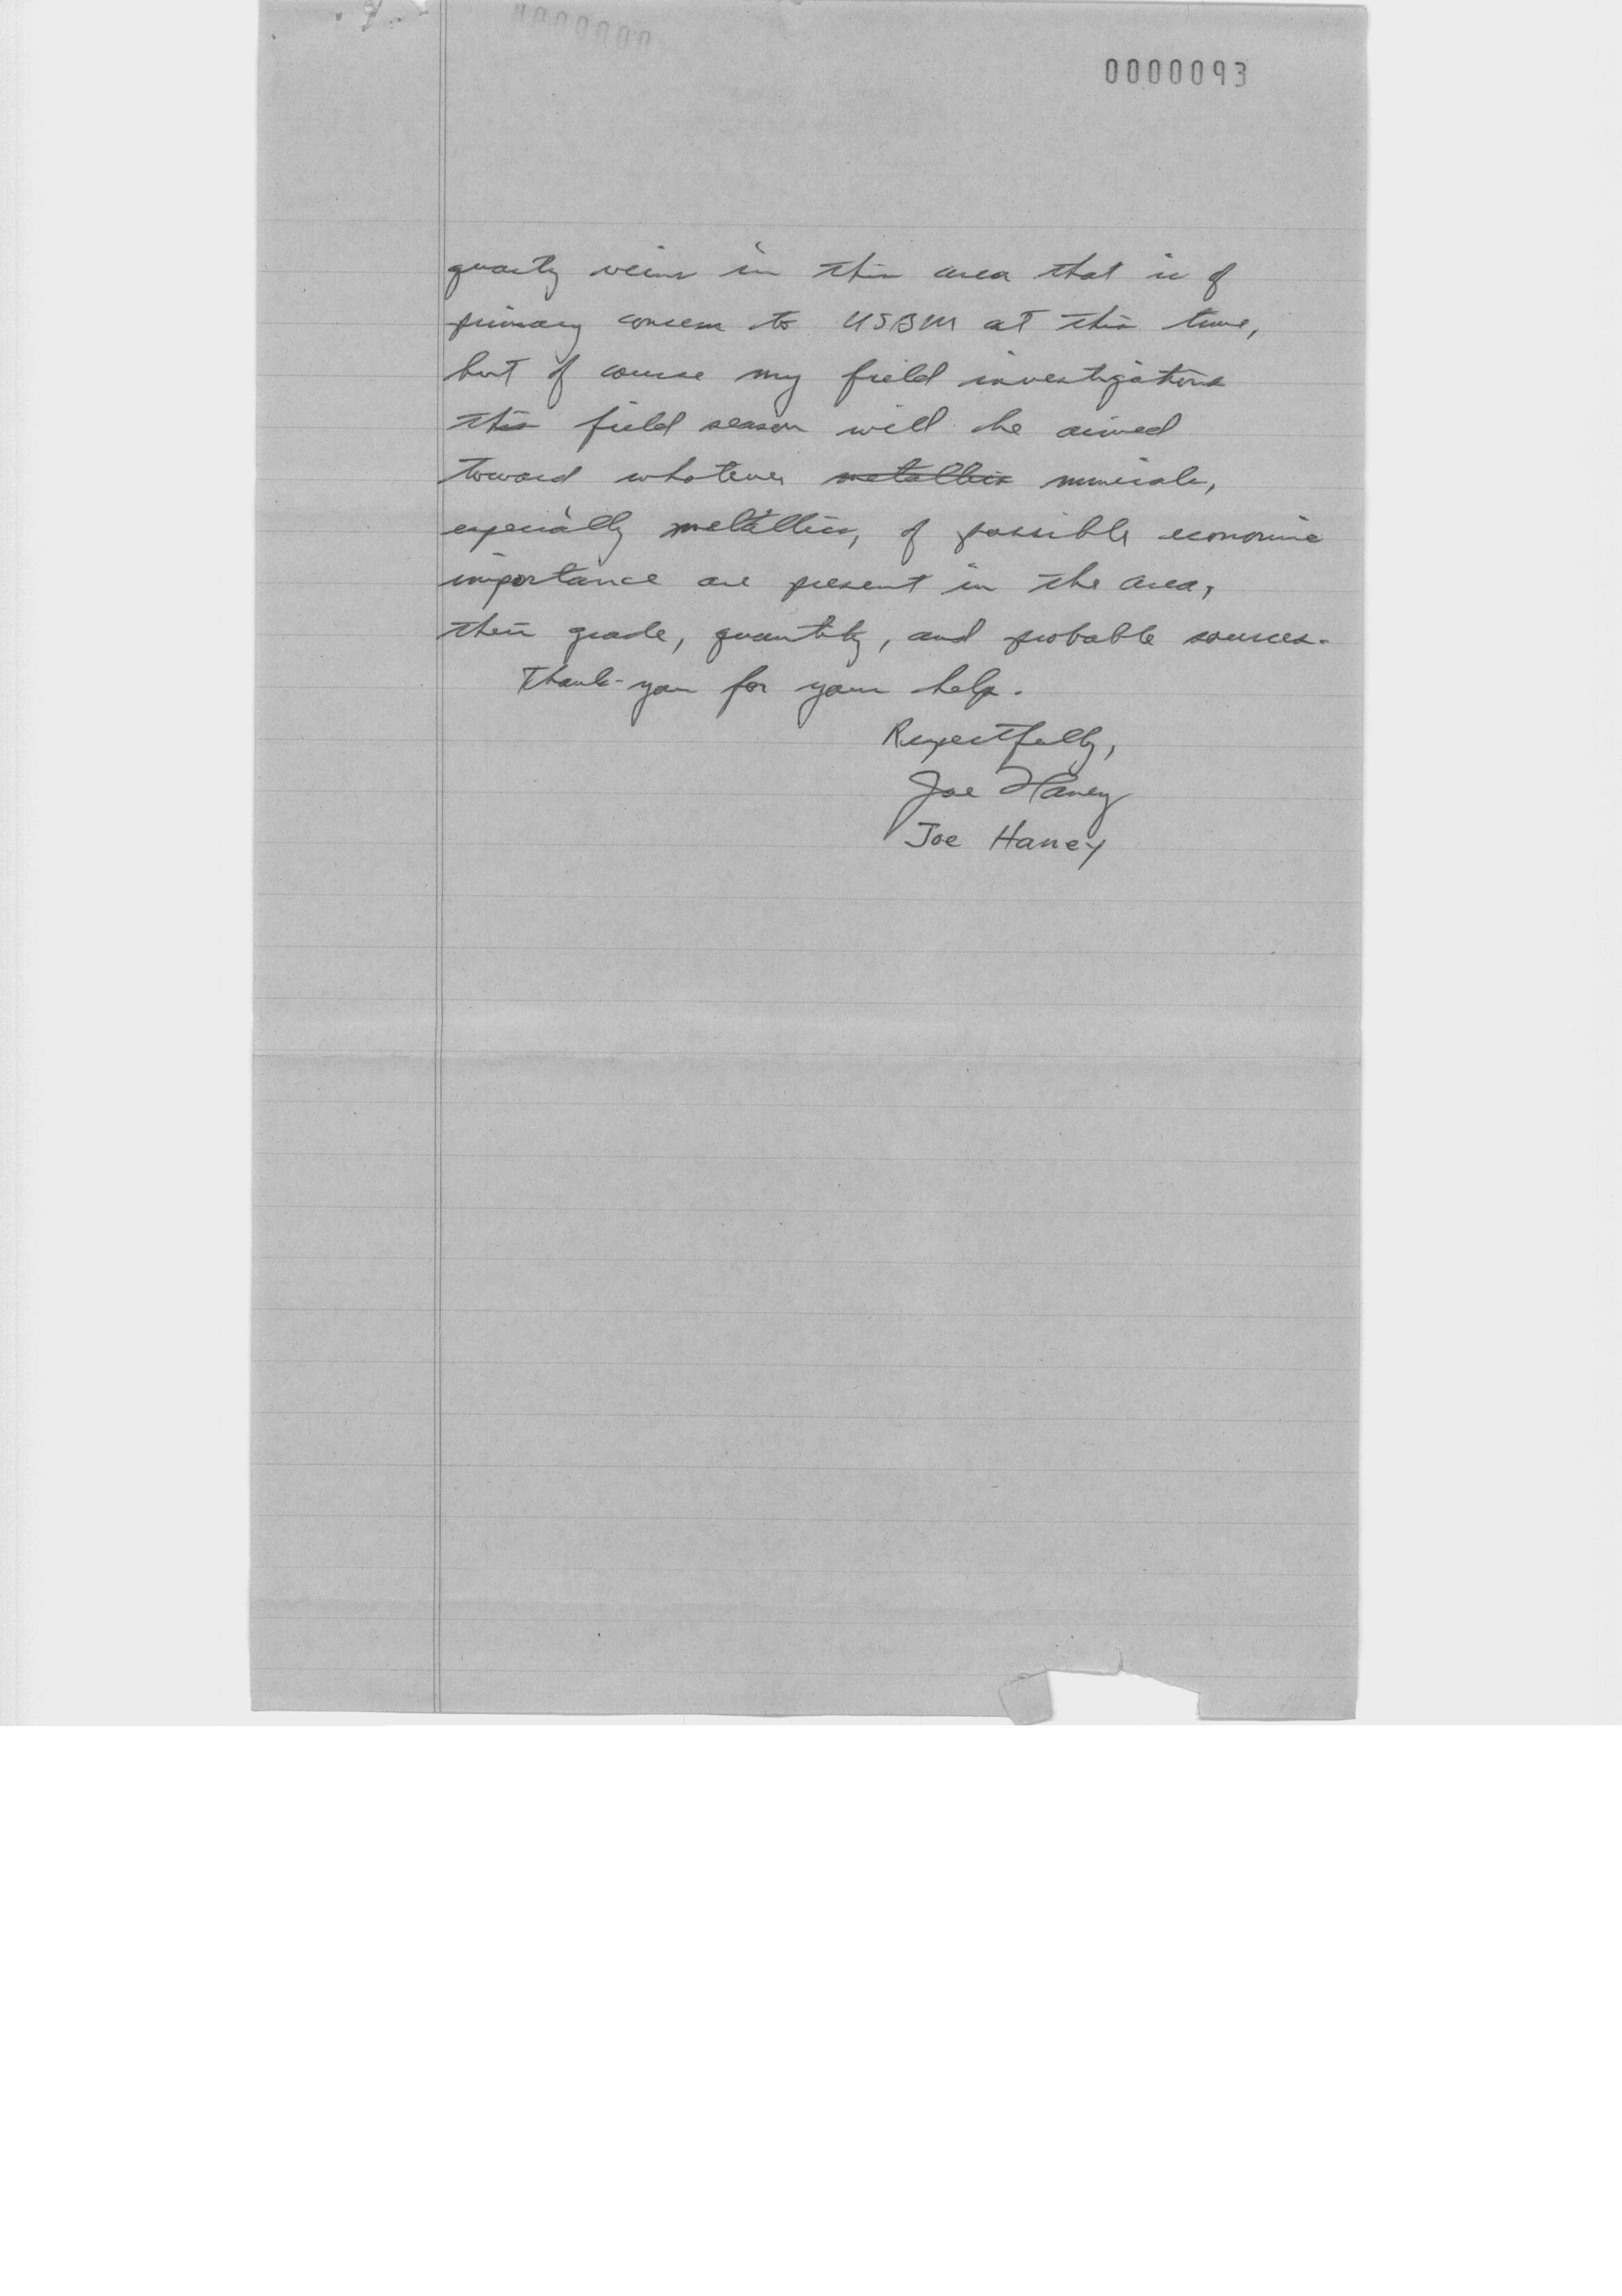 0000093
quartz veins in this area that is of
primary concern to USBM at this time,
but of course my field investigations
this field season will be aimed
toward whatever metallic minerals,
especially metallics, of possible economic
importance are present in the area,
their grade, quantity, and probable sources.
Thank-you for your help.
Respectfully,
Joe Haney
Joe Haney